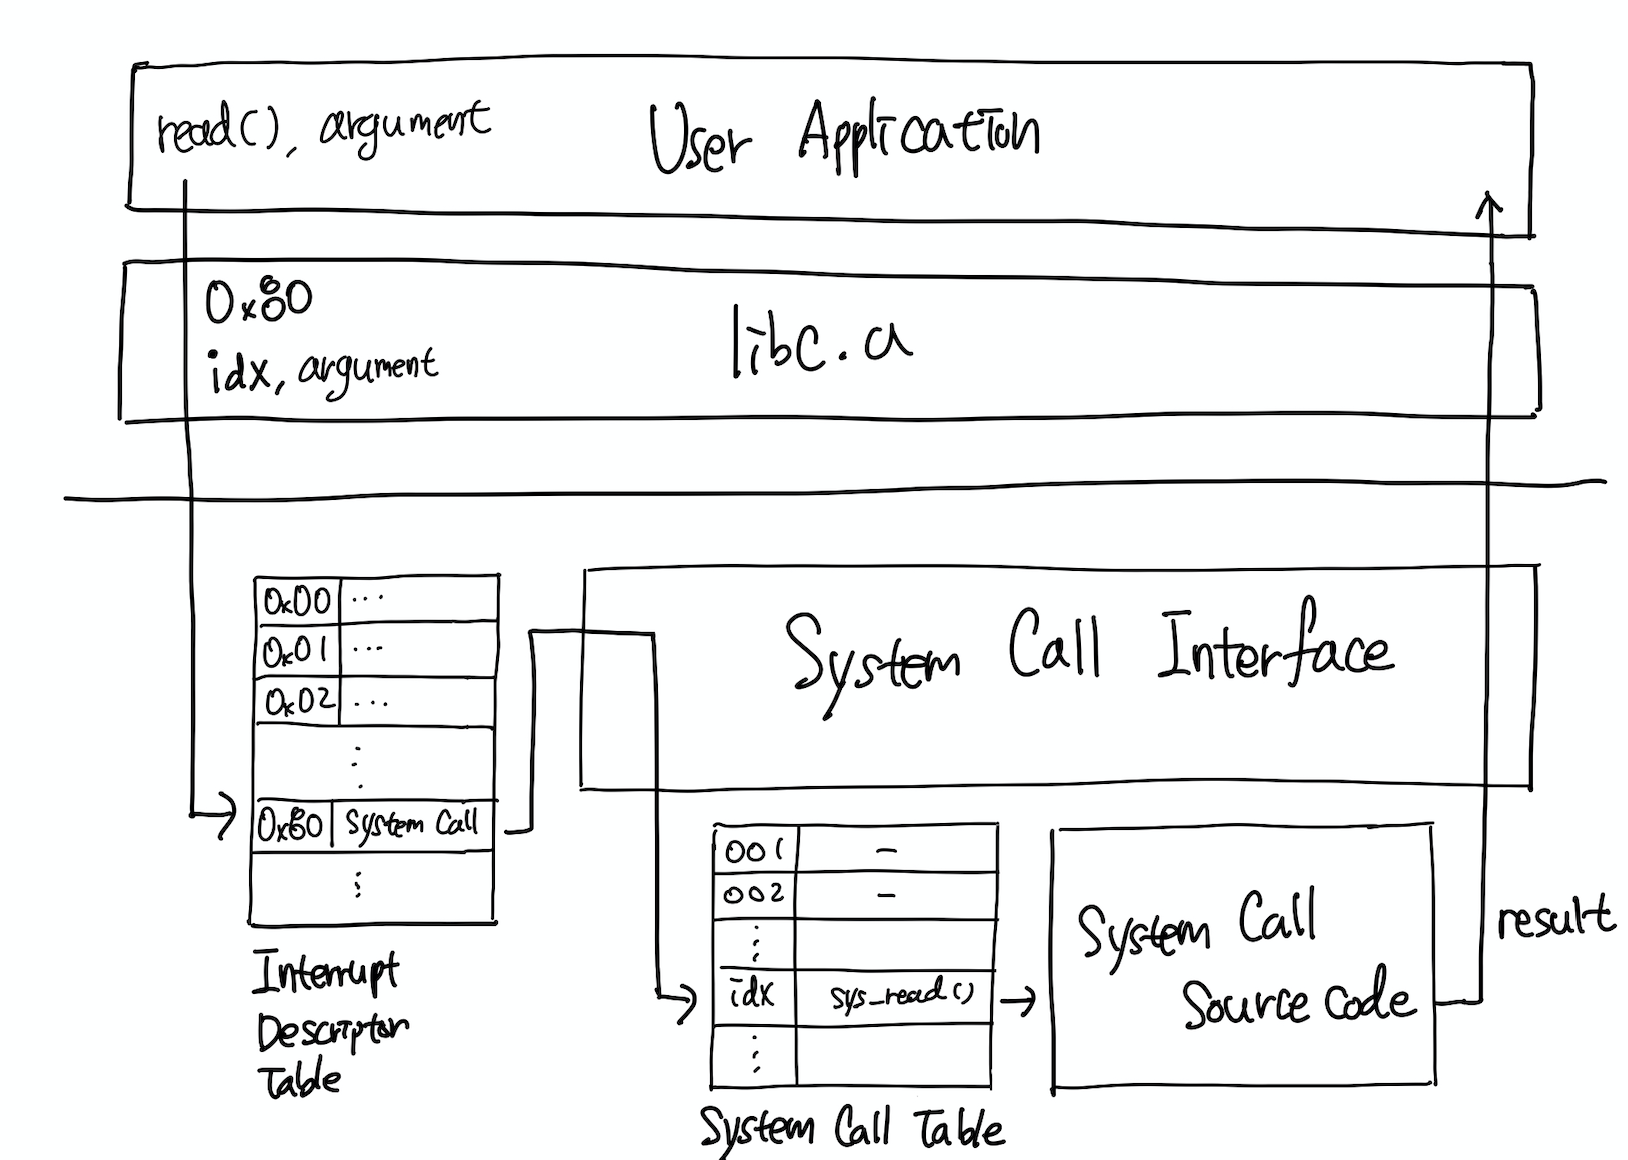 read(), argument
User Application
0x80
idx, argument
libc.a
0x00 ...
0x01 ...
0x02 ...
0x80 System Call
Interrupt
Descriptor
Table
System Call Interface
001 -
002 -
idx sys_read()
System Call Table
System Call
Source code
result